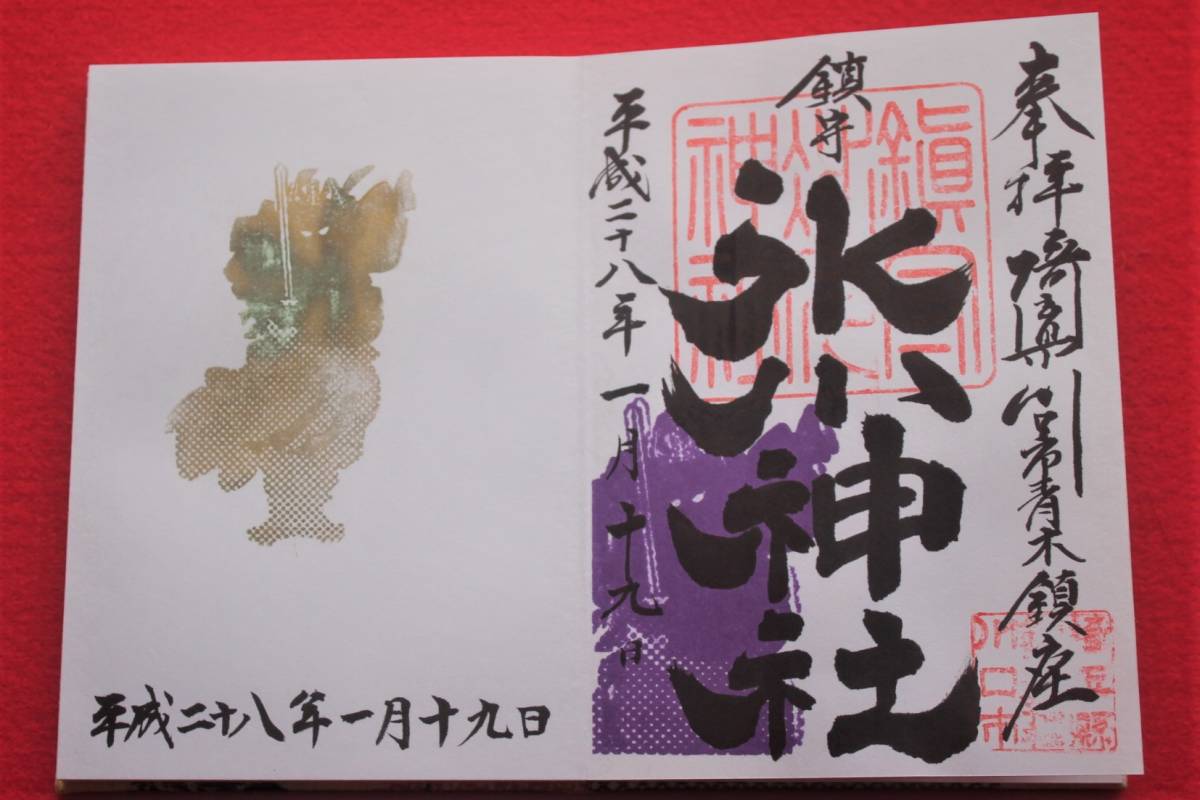 奉拝 埼玉県川口市青木鎮座
鎮守
氷川神社
平成二十八年一月十九日
鎮守
氷川
神社
埼玉縣
川口市
平成二十八年一月十九日